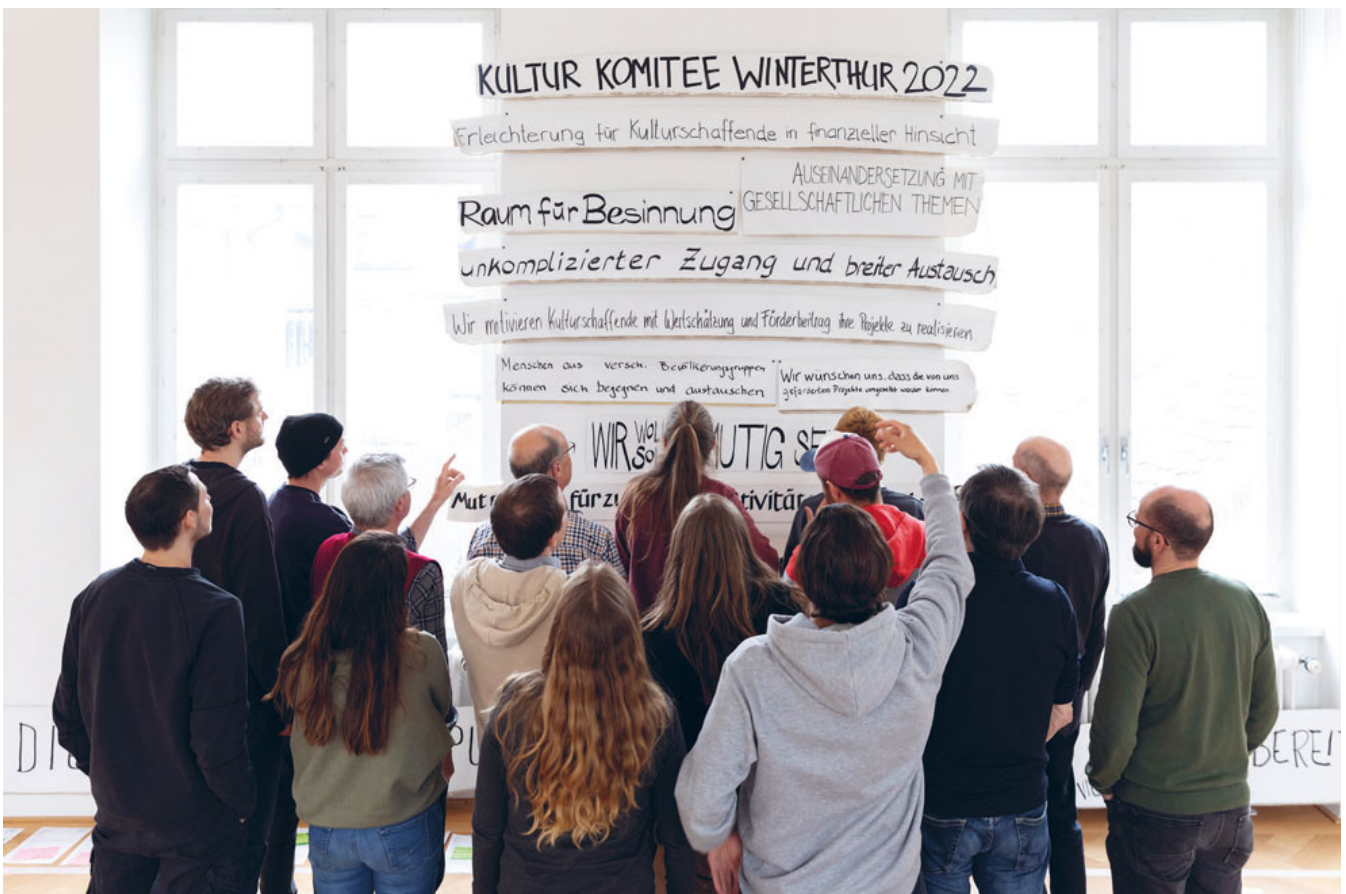 KULTUR KOMITEE WINTERTHUR 2022
Erleichterung für Kulturschaffende in finanzieller Hinsicht
AUSEINANDERSETZUNG MIT
GESELLSCHAFTLICHEN THEMEN
Raum für Besinnung
unkomplizierter Zugang und breiter Austausch
Wir motivieren Kulturschaffende mit Wertschätzung und Förderbeitrag ihre Projekte zu realisieren
Menschen aus versch. Bevölkerungsgruppen
können sich begegnen und austauschen
Wir wünschen uns, dass die von uns
geförderten Projekte umgesetzt werden können
WIR MUTIG
Mut für
BEREIT